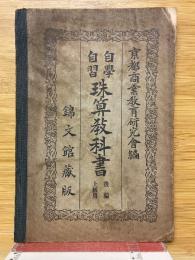 京都商業教育研究會編
自學
自習
珠算教科書
後編
錦文館藏版